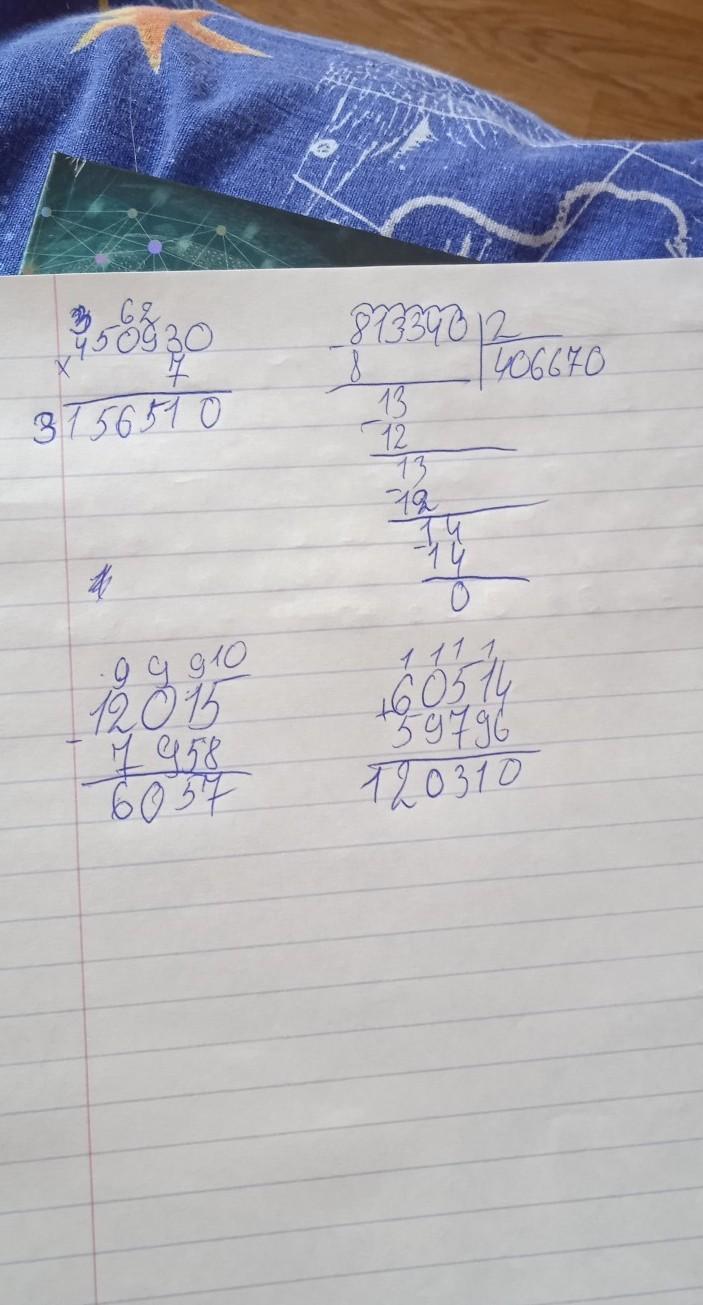 3 62
450930
x 7
3156510
- 813340 | 2
8 406670
13
- 12
13
- 12
14
- 14
0
9 9 9 10
12015
- 7 958
6057
1 1 1 1
60514
+ 59796
120310